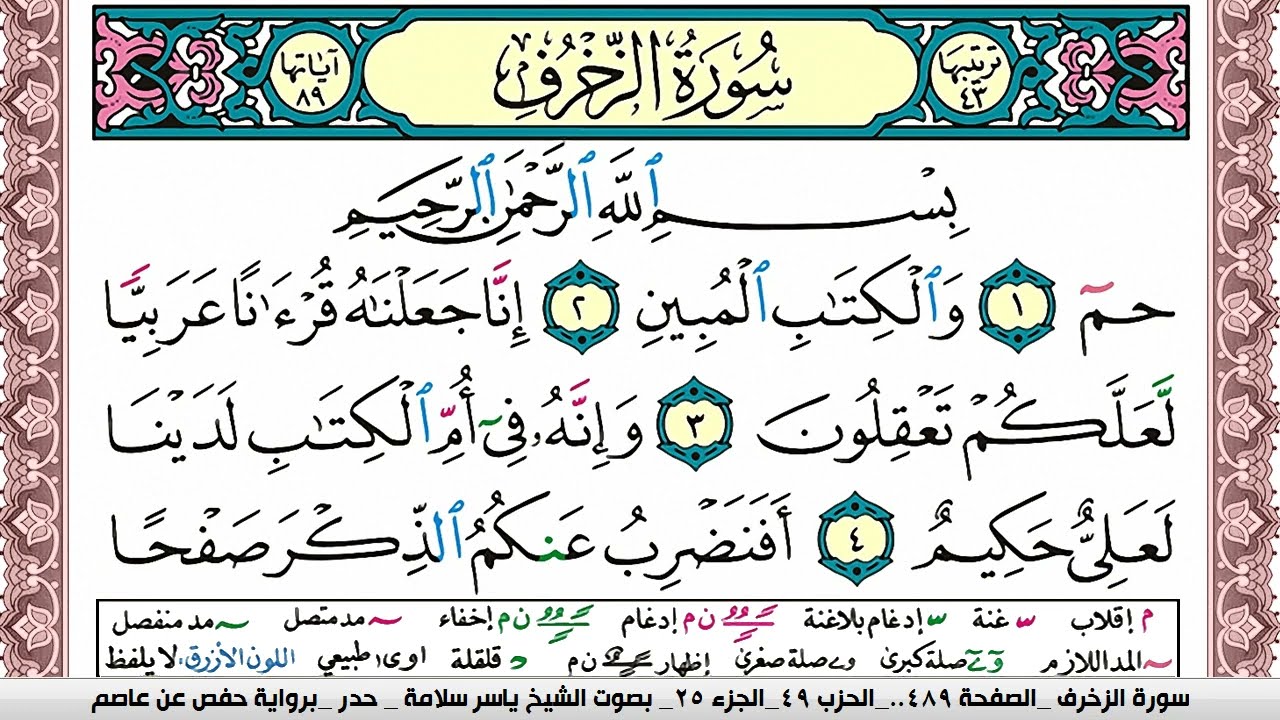 ترتيبها ٤٣ سُورَةُ الزُّخْرُفِ آياتها ٨٩
بِسْمِ ٱللَّهِ ٱلرَّحْمَٰنِ ٱلرَّحِيمِ
حمٓ ١ وَٱلْكِتَٰبِ ٱلْمُبِينِ ٢ إِنَّا جَعَلْنَٰهُ قُرْءَٰنًا عَرَبِيًّا
لَّعَلَّكُمْ تَعْقِلُونَ ٣ وَإِنَّهُۥ فِىٓ أُمِّ ٱلْكِتَٰبِ لَدَيْنَا
لَعَلِىٌّ حَكِيمٌ ٤ أَفَنَضْرِبُ عَنكُمُ ٱلذِّكْرَ صَفْحًا
م إقلاب س غنة س إدغام بلاغنة ن م إدغام ن م إخفاء مد متصل مد منفصل
المد اللازم صلة كبرى و ے صلة صغرى إظهار ن م د قلقلة اوى طبيعي اللون الأزرق: لا يلفظ
سورة الزخرف _الصفحة ٤٨٩.._الحزب ٤٩_الجزء ٢٥_ بصوت الشيخ ياسر سلامة _ حدر _برواية حفص عن عاصم